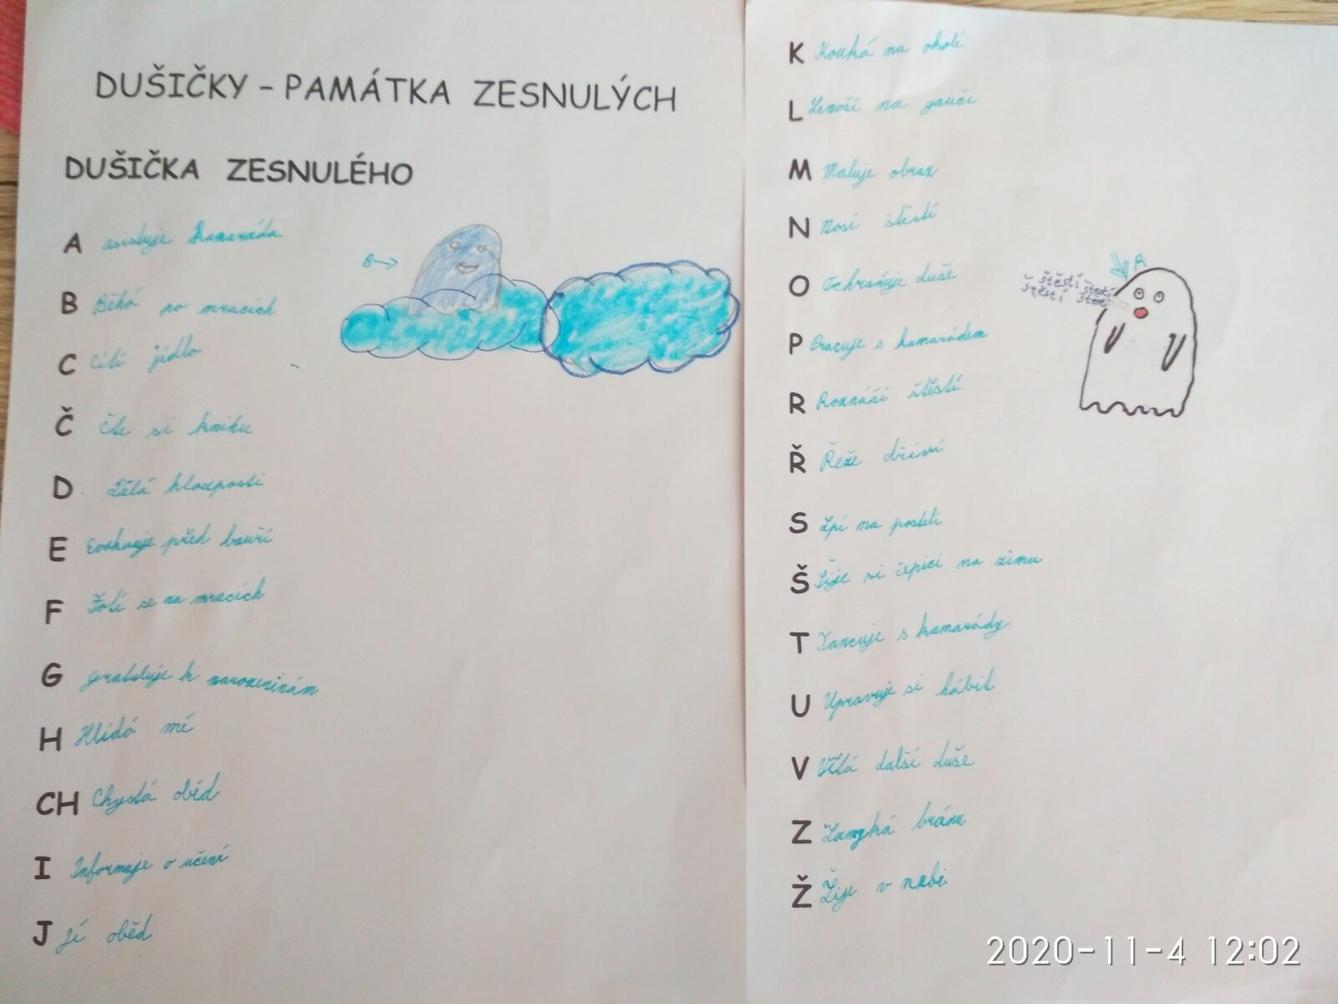 DUŠIČKY - PAMÁTKA ZESNULÝCH
DUŠIČKA ZESNULÉHO
A asistuje kamaráda
B Běhá po mracích
B→
C Cítí jídlo
Č Čte si knihu
D Dělá hlouposti
E Evakuuje před bouří
F Fotí se na mracích
G gratuluje k narozeninám
H Hlídá mě
CH Chystá oběd
I Informuje o učení
J Jí oběd
K Kouká na okolí
L Lenoší na gauči
M Maluje obraz
N Nosí štěstí
O Ochraňuje duše
R
štěstí štěstí
štěstí
P Pracuje s kamarádem
R Roznáší štěstí
Ř Řeže dříví
S Spí na posteli
Š Šije si čepici na zimu
T Tancuje s kamarády
U Upravuje si hábit
V Vítá další duše
Z Zamyká bránu
Ž Žije v nebi
2020-11-4 12:02